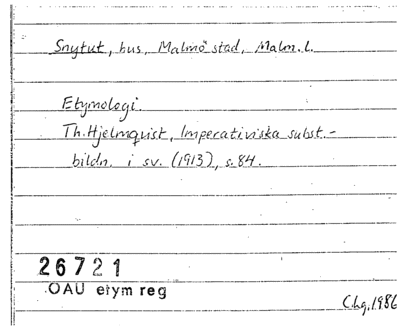 Snytut, hus, Malmö stad, Malm. l.
Etymologi.
Th. Hjelmquist, Imperativiska subst.-
bildn. i sv. (1913), s. 84.
26721
OAU etym reg
C.hg. 1986